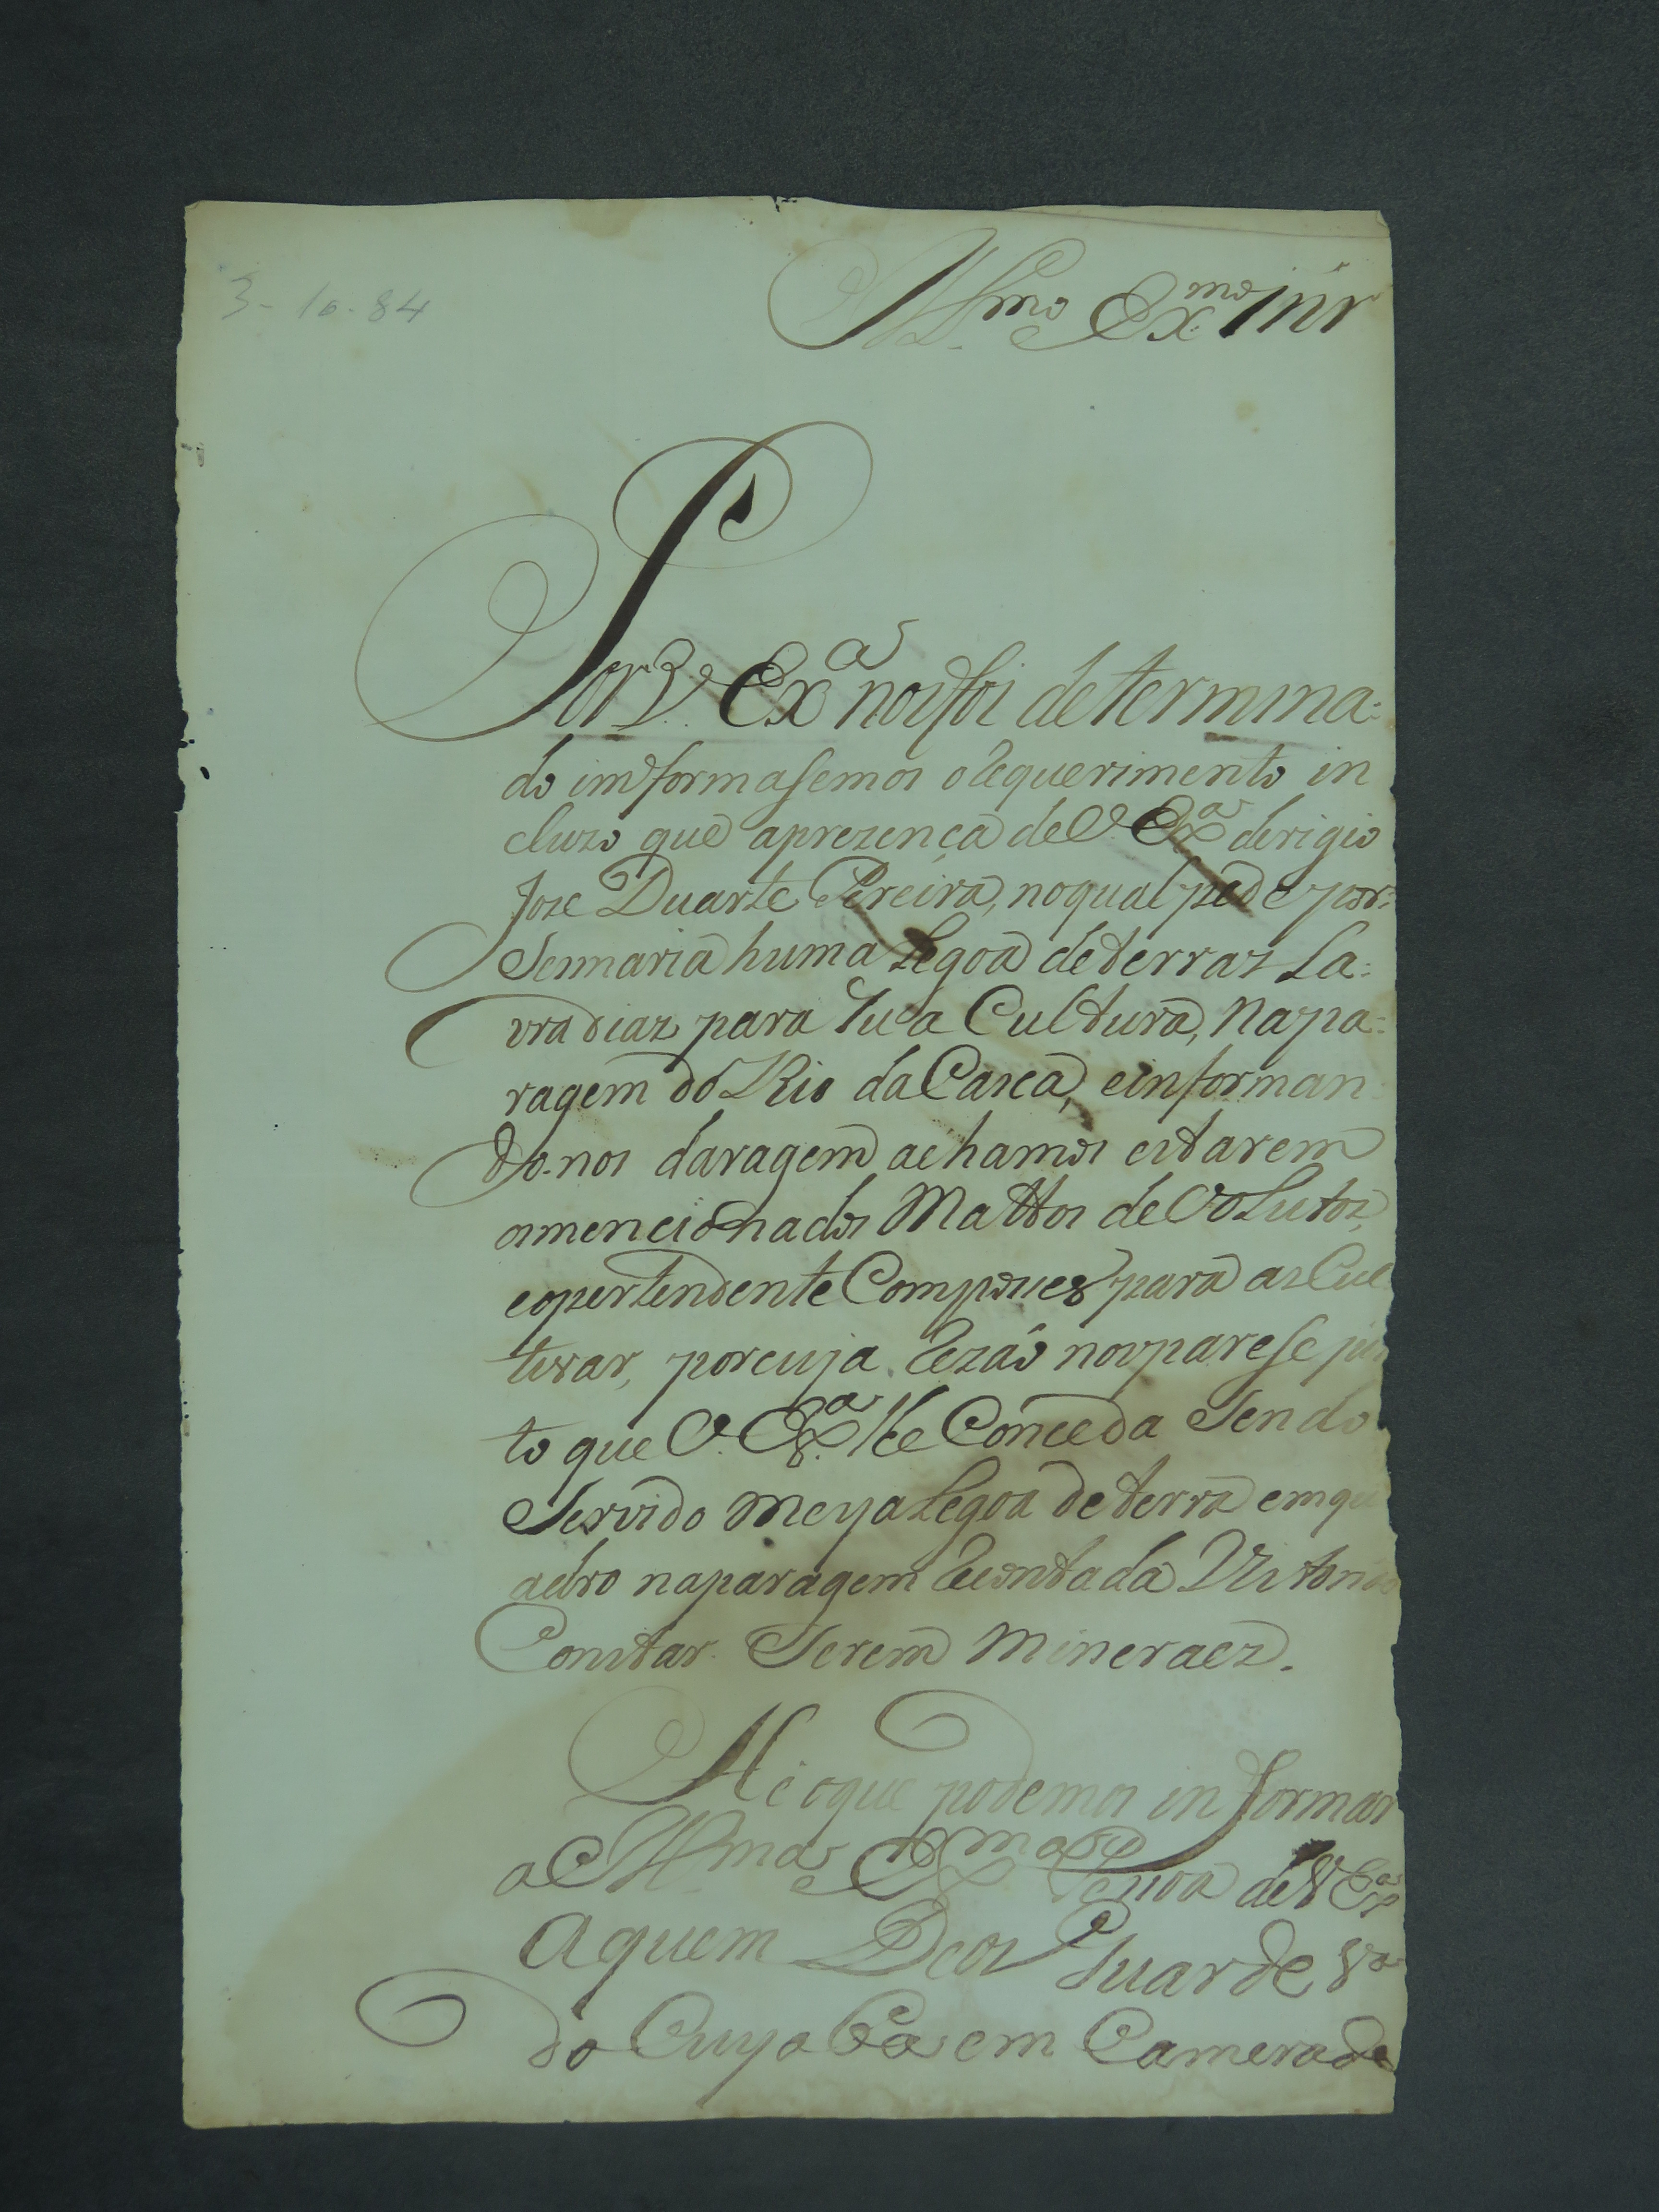 3-10-84
Illmo Exmo Snr
Por V. Exa nos foi determina:
do imformasemos o Requerimento in
cluzo que aprezenca de V. Exa derigio
Joze Duarte Pereira, noqual pede por:
Sesmaria huma Legoa de terras La:
vradias para sua Cultura, Napa:
ragem do Rio da Casca, einforman
do.nos daragem achamos estarem
osmencionados Mattos devolutos,
eopertendente Compósses para as Cul
tivar, porcuja Rezão nosparese jus
to que V. Exa. lhe Conceda Sendo
Servido Meya Legoa de terra emqu
adro naparagem Recontada Visto não
Constar Serem Mineraes.
He oque podemos informar
a Illma e Exma Pessoa de V Exa
Aquem Deos Guarde Va
do Cuyaba em Camera de